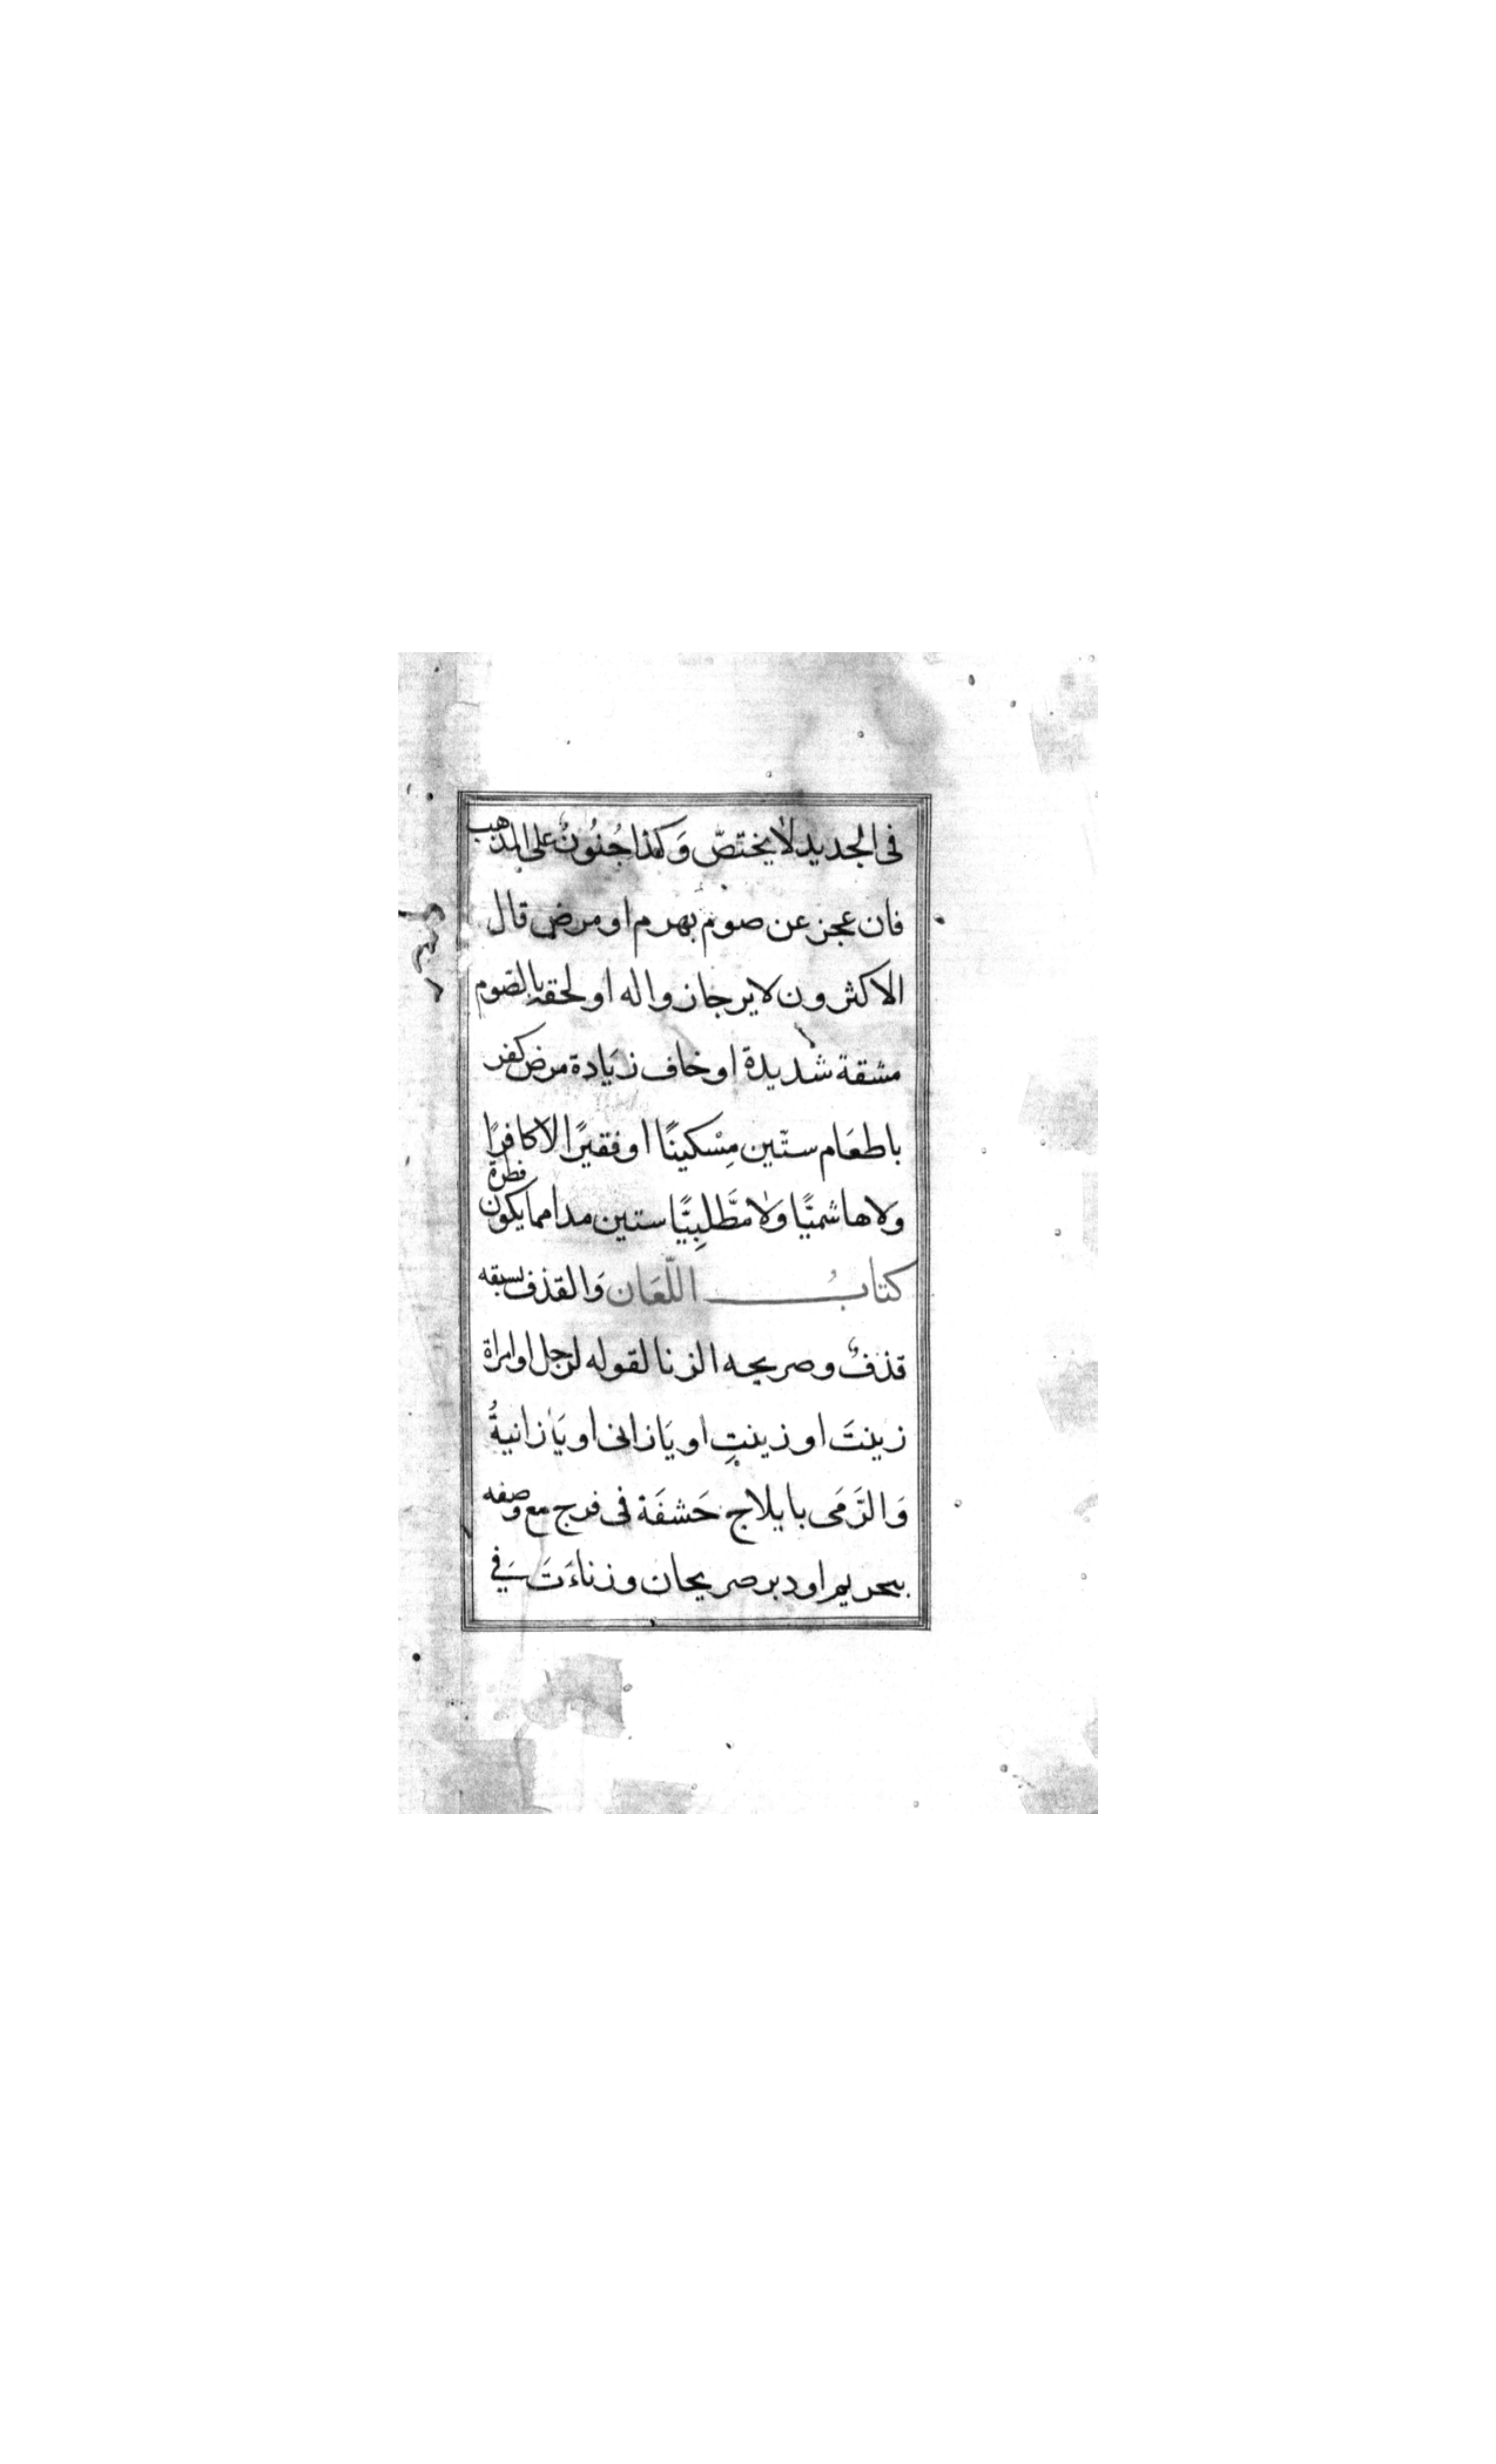 فى الجديد لا يختصّ وَكذا جُنُونٌ على المذهب
فان عجز عن صوم بهرم او مرض قال
الاكثرون لا يرجا زواله او لحقه بالصّوم
مشقة شديدة او خاف زيَادة مرض كفر
باطعَام ستّين مِسْكينًا او فقيرًا لا كافرًا
ولا هاشميًّا وَلا مطَّلِبِيًّا ستين مدا مما يكون فطرة
كتابُ اللّعَان وَالقذف يسبقه
قذفٌ وصريحه الزنا لقوله لرجل او امراة
زينتَ او زينتِ او يَا زانى او يَا زانيةُ
وَالرَّمَى بايلاج حَشفَة فى فرج مع وصفه
بتحريم او دبر صريحان وزناءَتَ فِي